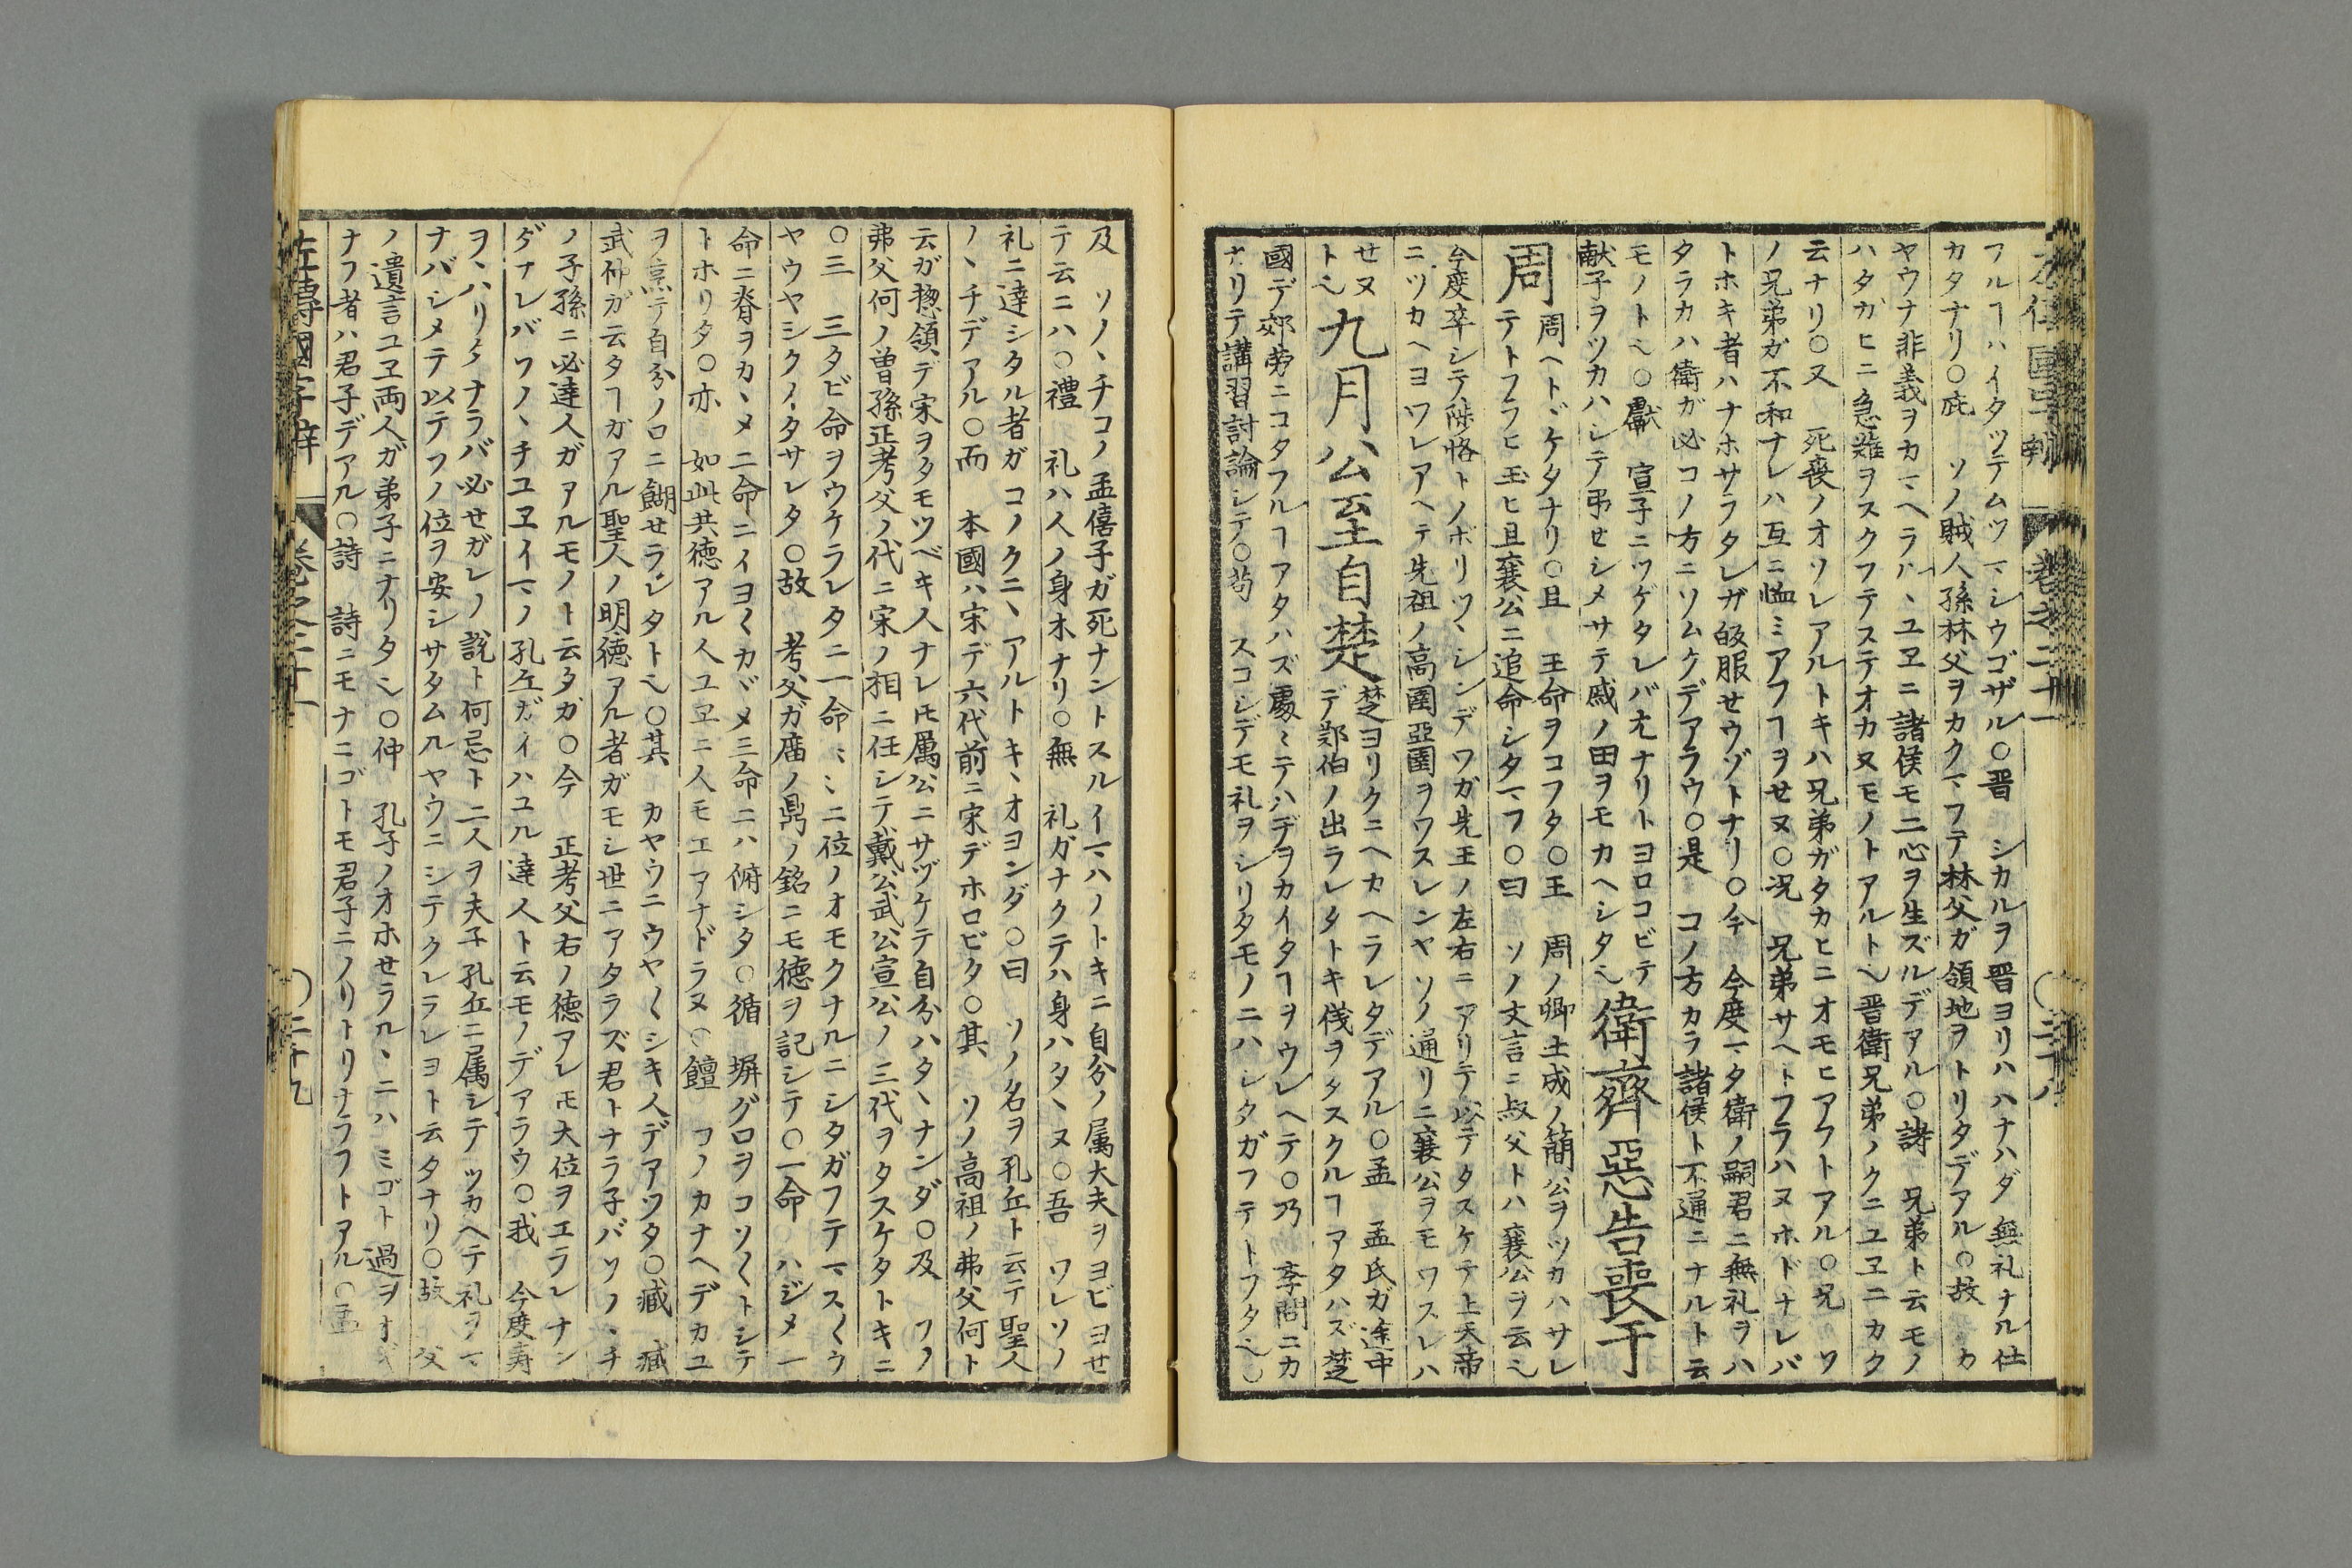 左傳國字辯 巻之二十一 〇二十八
アルヿハイタツテムツマシウゴザル〇晋 シカルヲ晋ヨリハハナハダ無礼ナル仕
カタナリ〇庇 ソノ賊人孫林父ヲカクマフテ林父ガ領地ヲトリタデアル〇故 カ
ヤウナ非義ヲカマヘラハヽユヱニ諸侯モ二心ヲ生ズルデアル〇詩 兄弟ト云モノ
ハタガヒニ急難ヲスクフテステオカヌモノトアルト也晋衛兄弟ノクニユヱニカク
云ナリ〇又 死喪ノオソレアルトキハ兄弟ガタカヒニオモヒアフトアル〇兄 ソ
ノ兄弟ガ不和ナレハ互ニ恤ミアフヿヲせヌ〇况 兄弟サヘトフラハヌホドナレバ
トホキ者ハナホサラタレガ皈服せウゾトナリ〇今 今度マタ衛ノ嗣君ニ無礼ヲハ
タラカハ衛ガ必コノ方ニソムクデアラウ〇是 コノ方カラ諸侯ト不通ニナルト云
モノト也〇獻 宣子ニツゲタレバ尤ナリトヨロコビテ
献子ヲツカハシテ弔せシメサテ戚ノ田ヲモカヘシタ也
衛齊惡告喪于
周
周ヘトヾケタナリ〇且 王命ヲコフタ〇王 周ノ卿士成ノ簡公ヲツカハサレ
テトフラヒ玉ヒ且襄公ニ追命シタマフ〇曰 ソノ文言ニ叔父トハ襄公ヲ云也
今度卒シテ陟恪トノボリツヽシンデワガ先王ノ左右ニアリテ以テタスケテ上天帝
ニツカヘヨワレアヘテ先祖ノ高圉亞圉ヲワスレンヤソノ通リニ襄公ヲモワスレハ
せヌ
ト也
九月公至自楚
楚ヨリクニヘカヘラレタデアル〇孟 孟氏ガ途中
デ鄭伯ノ出ラレタトキ儀ヲタスクルヿアタハズ楚
國デ郊労ニコタフルヿアタハズ慶ミテハヂヲカイタヿヲウレヘテ〇乃 李問ニカ
ナリテ講習討論シテ〇苟 スコシデモ礼ヲシリタモノニハシタガフテトフタ也〇
及 ソノヽチコノ孟僖子ガ死ナントスルイマハノトキニ自分ノ属大夫ヲヨビヨせ
テ云ニハ〇禮 礼ハ人ノ身木ナリ〇無 礼ガナクテハ身ハタヽヌ〇吾 ワレソノ
礼ニ達シタル者ガコノクニヽアルトキヽオヨンダ〇曰 ソノ名ヲ孔丘ト云テ聖人
ノヽチデアル〇而 本國ハ宋デ六代前ニ宋デホロビタ〇其 ソノ高祖ノ弗父何ト
云ガ惣領デ宋ヲタモツベキ人ナレ𪜈厲公ニサヅケテ自分ハタヽナンダ〇及 ソノ
弗父何ノ曽孫正考父ノ代ニ宋ノ相ニ任シテ戴公武公宣公ノ三代ヲタスケタトキニ
〇三 三タビ命ヲウケラレタニ一命ミミニ位ノオモクナルニシタガフテマスくウ
ヤウヤシクイタサレタ〇故 考父ガ廟ノ鼎ノ銘ニモ徳ヲ記シテ〇一命 ハジメ一
命ニ脊ヲカヽメ二命ニイヨくカヾメ三命ニハ俯シタ〇循 塀グロヲコソくトシテ
トホリタ〇亦 如此共徳アル人ユヱニ人モエアナドラヌ〇饘 コノカナヘデカユ
ヲ烹テ自分ノロニ餬せラレタト也〇其 カヤウニウヤくシキ人デアツタ〇臧 臧
武仲ガ云タヿガアル聖人ノ明徳アル者ガモシ世ニアタラズ君トナラ子バソノヽチ
ノ子孫ニ必達人ガアルモノト云タガ〇今 正考父右ノ徳アレ𪜈大位ヲエラレナン
ダナレバソノヽチユヱイマノ孔丘ガイハユル達人ト云モノデアラウ〇我 今度壽
ヲヽハリタナラバ必せガレノ説ト何忌ト二人ヲ夫子孔丘ニ属シテツカヘテ礼ヲマ
ナバシメテ以テソノ位ヲ安シサタムルヤウニシテクレラレヨト云タナリ〇故 父
ノ遺言ユヱ両人ガ弟子ニナリタ也〇仲 孔子ノオホせラルヽニハミゴト過ヲオギ
ナフ者ハ君子デアル〇詩 詩ニモナニゴトモ君子ニノリトリナラフトアル〇孟
左傳國字辯 巻之二十一 〇二十九